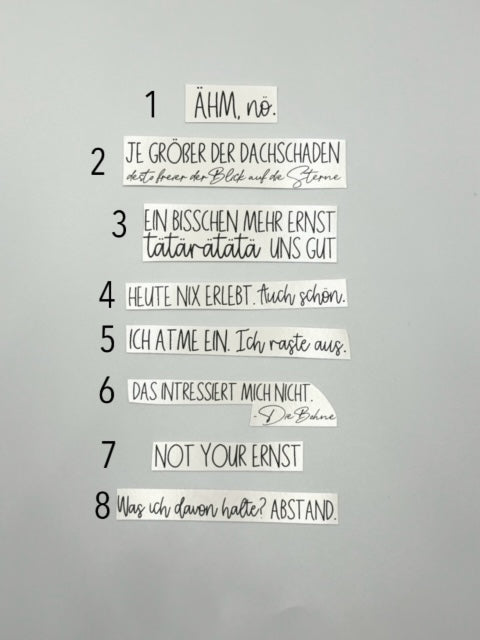 1 ÄHM, nö.
2 JE GRÖßER DER DACHSCHADEN
desto freier der Blick auf die Sterne
3 EIN BISSCHEN MEHR ERNST
tätärätätä UNS GUT
4 HEUTE NIX ERLEBT. Auch schön.
5 ICH ATME EIN. Ich raste aus.
6 DAS INTRESSIERT MICH NICHT.
- Die Bohne
7 NOT YOUR ERNST
8 Was ich davon halte? ABSTAND.